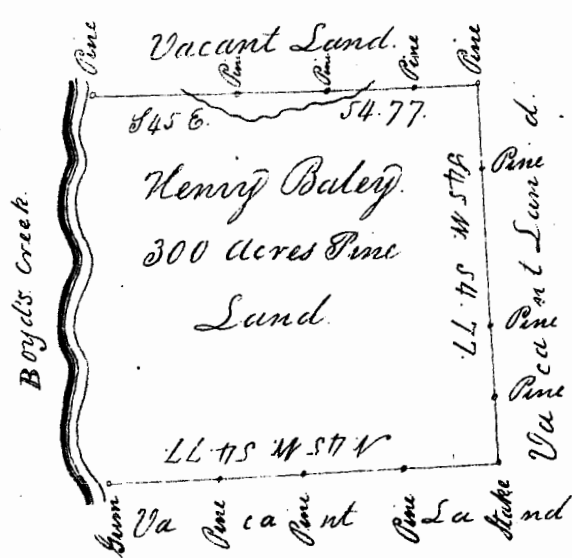 Vacant Land.
Pine
Pine
Pine
Pine
Pine
S45 E. 54.77.
Henry Baley.
300 Acres Pine
Land.
Boyd's Creek.
S45 W. 54.77
Pine
Pine
Pine
Vacant Land.
N45 W 54.77
Gum
Pine
Pine
Pine
Stake
Vacant Land